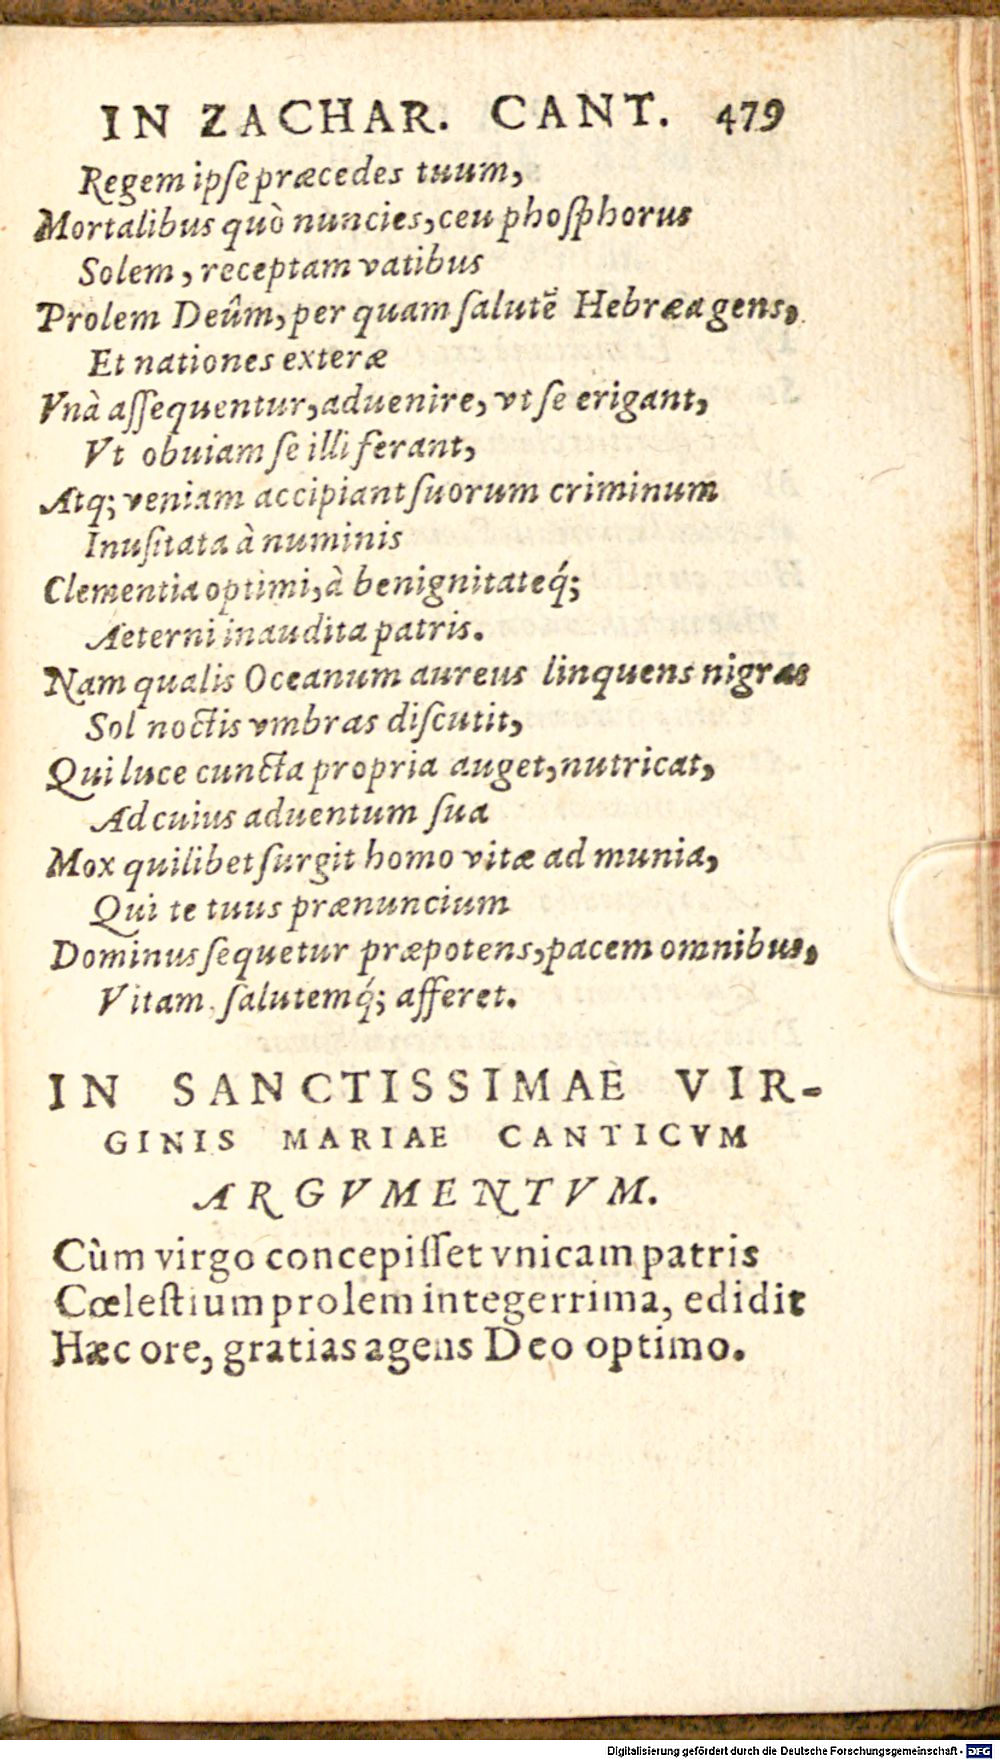 IN ZACHAR. CANT. 479
Regem ipſe præcedes tuum,
Mortalibus quò nuncies, ceu phoſphorus
Solem, receptam vatibus
Prolem Deûm, per quam ſalutē Hebræa gens,
Et nationes exteræ
Vnà aſſequentur, aduenire, vt ſe erigant,
Vt obuiam ſe illi ferant,
Atq; veniam accipiant ſuorum criminum
Inuſitata à numinis
Clementia optimi, à benignitateq́;
Aeterni inaudita patris.
Nam qualis Oceanum aureus linquens nigras
Sol noctis vmbras diſcutit,
Qui luce cuncta propria auget, nutricat,
Ad cuius aduentum ſua
Mox quilibet ſurgit homo vitæ ad munia,
Qui te tuus prænuncium
Dominus ſequetur præpotens, pacem omnibus,
Vitam ſalutemq́; afferet.
IN SANCTISSIMAE VIR-
GINIS MARIAE CANTICVM
ARGVMENTVM.
Cùm virgo concepiſſet vnicam patris
Cœleſtium prolem integerrima, edidit
Hæc ore, gratias agens Deo optimo.
Digitalisierung gefördert durch die Deutsche Forschungsgemeinschaft - DFG